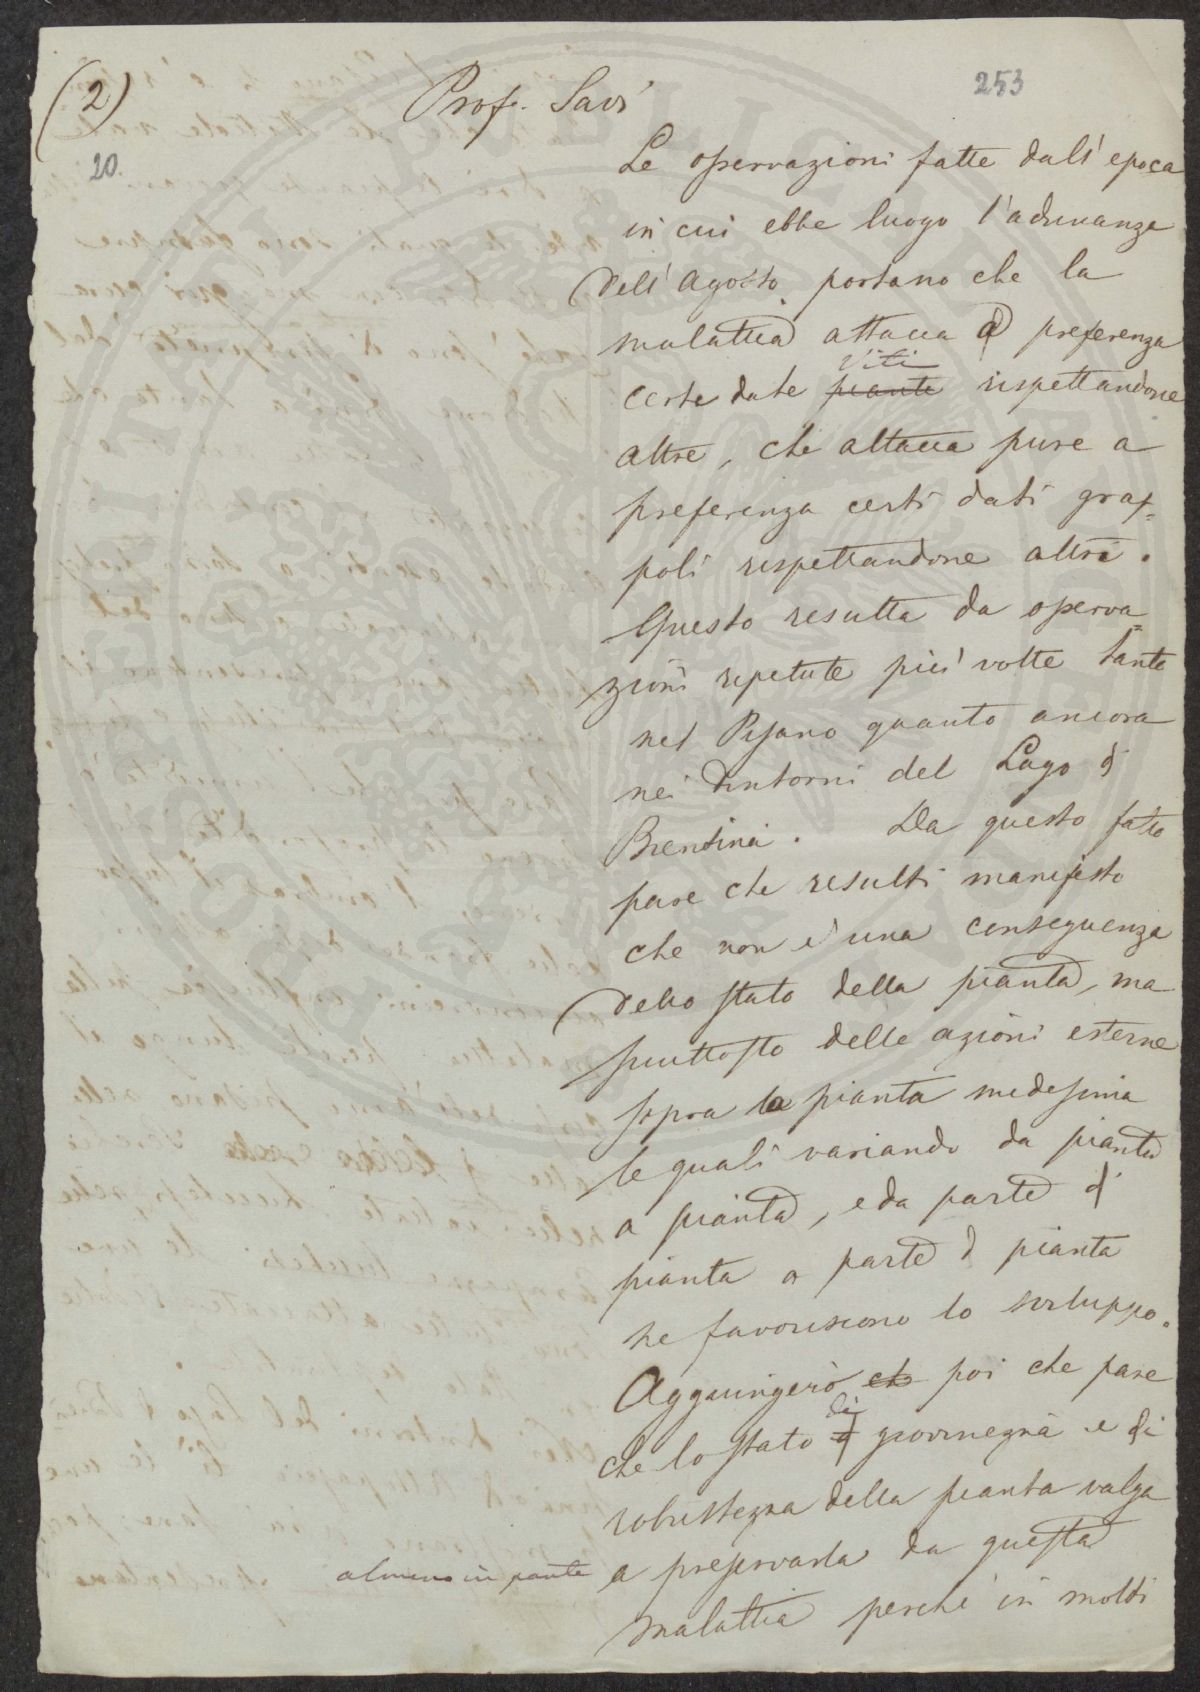 (2)
20.
253
Prof. Savi
Le osservazioni fatte dall'epoca
in cui ebbe luogo l'adunanza
dell'Agosto, portano che la
malattia attacca a preferenza
certe date piante viti rispettandone
altre, che attacca pure a
preferenza certi dati grap=
poli rispettandone altri.
Questo resulta da osserva=
zioni repetute più volte tanto
nel Pisano quanto ancora
nei dintorni del Lago di
Bientina. Da questo fatto
pare che resulti manifesto
che non è una conseguenza
dello stato della pianta, ma
piuttosto delle azioni esterne
sopra la pianta medesima
le quali variando da pianta
a pianta, e da parte di
pianta a parte di pianta
ne favoriscono lo sviluppo.
Aggiungerò che poi che pare
che lo stato di giovinezza e di
robustezza della pianta valga
almeno in parte a preservarla da questa
malattia perché in molti